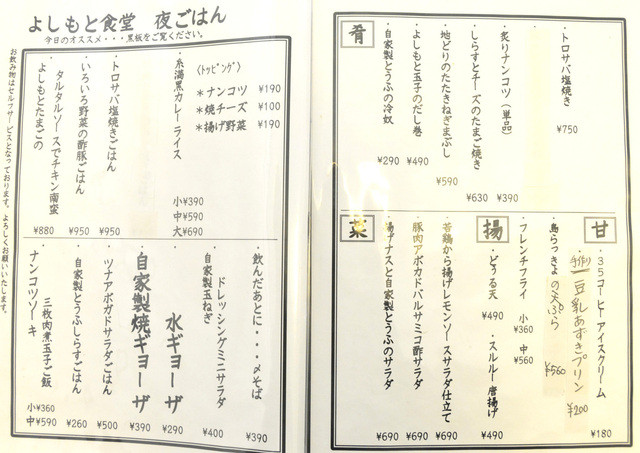 よしもと食堂 夜ごはん
今日のオススメ・・・黒板をご覧ください。
お飲み物はセルフサービスとなっております。よろしくお願いいたします。
・糸満黒カレーライス
小¥390
中¥590
大¥690
〈トッピング〉
*ナンコツ ¥190
*焼チーズ ¥100
*揚げ野菜 ¥190
・トロサバ塩焼きごはん ¥950
・いろいろ野菜の酢豚ごはん ¥950
・よしもとたまごの
タルタルソースでチキン南蛮 ¥880
・飲んだあとに・・・〆そば ¥390
・自家製玉ねぎ
ドレッシングミニサラダ ¥400
・水ギョーザ ¥290
・自家製焼ギョーザ ¥390
・ツナアボガドサラダごはん ¥500
・自家製とうふしらすごはん ¥260
・ナンコツソーキ
三枚肉煮玉子ご飯
小¥360
中¥590
肴
・トロサバ塩焼き ¥750
・炙りナンコツ(単品) ¥390
・しらすとチーズのたまご焼き ¥630
・地どりのたたきねぎまぶし ¥590
・よしもと玉子のだし巻 ¥490
・自家製とうふの冷奴 ¥290
甘
・35コーヒーアイスクリーム ¥180
・手作り 豆乳あずきプリン ¥200
揚
・島らっきょの天ぷら ¥560
・フレンチフライ 小¥360 中¥560
・どぅる天 ¥490
・スルルー唐揚げ ¥490
菜
・若鶏から揚げレモンソースサラダ仕立て ¥690
・豚肉アボカドバルサミコ酢サラダ ¥690
・揚げナスと自家製とうふのサラダ ¥690